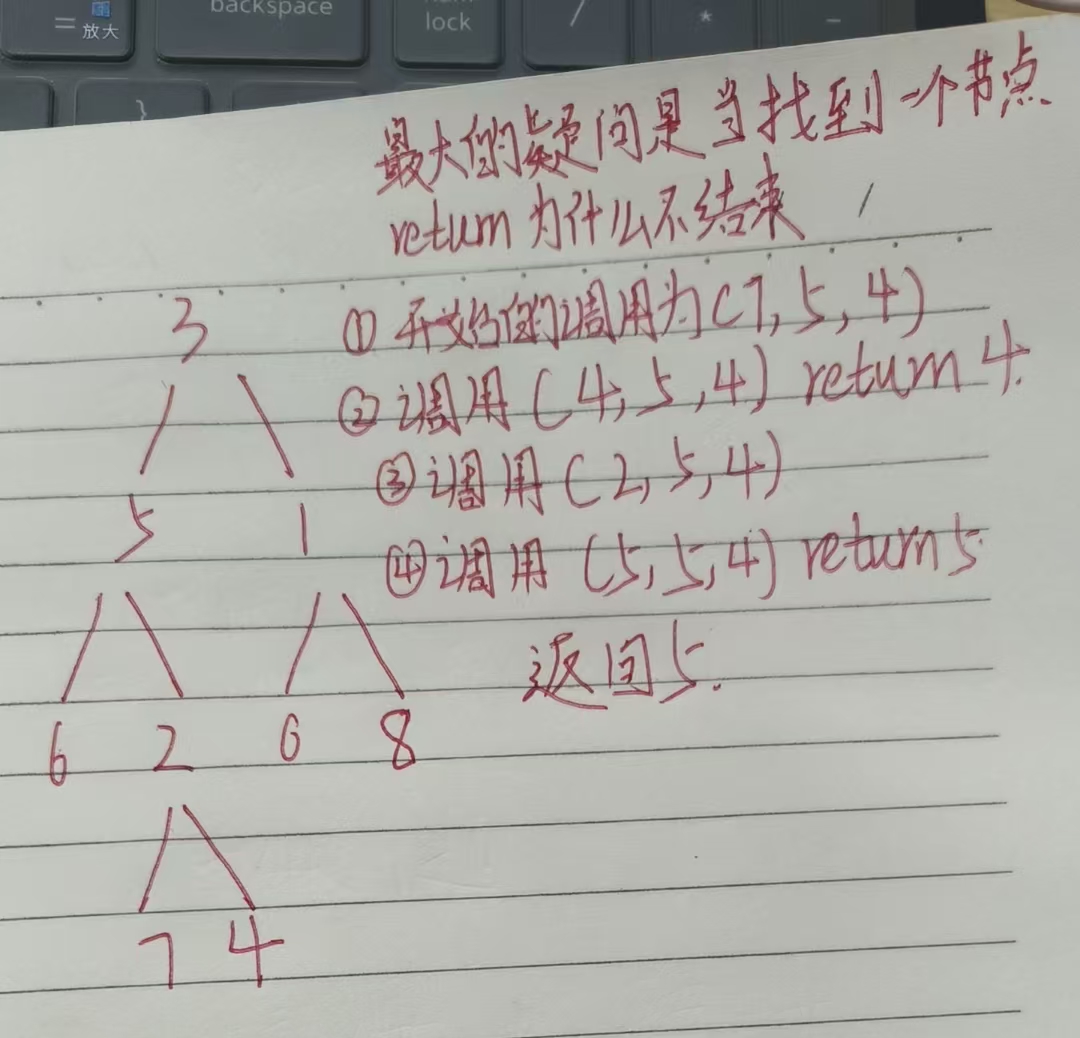 = 放大
backspace
num
lock
/
*
-
}
最大的疑问是当找到一个节点
return 为什么不结束
① 开始的调用为(7,5,4)
② 调用(4,5,4) return 4.
③ 调用(2,5,4)
④ 调用(5,5,4) return 5
返回5.
3
5 1
6 2 0 8
7 4